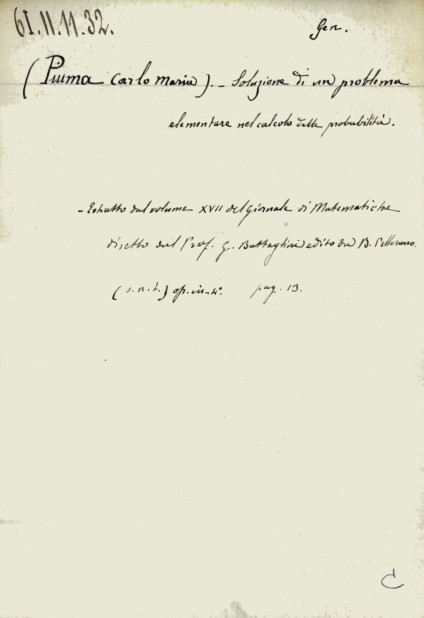 61.II.11.32.
Gen.
(Piuma Carlo Maria). - Soluzione di un problema
elementare nel calcolo delle probabilità.
- Estratto dal volume XVII del Giornale di Matematiche
diretto dal Prof. G. Battaglini edito da B. Pellerano.
(s.n.t.) op. in-4°. pag. 13.
C